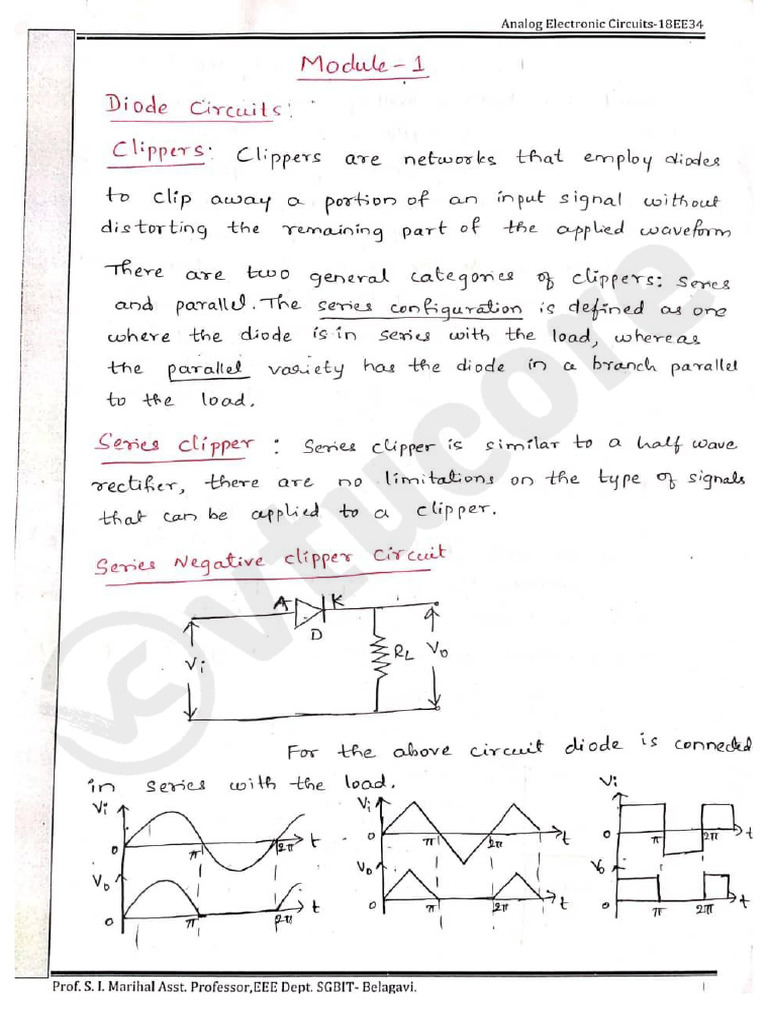 Analog Electronic Circuits-18EE34
Module-1
Diode Circuits:
Clippers: Clippers are networks that employ diodes
to clip away a portion of an input signal without
distorting the remaining part of the applied waveform
There are two general categories of clippers: Series
and parallel. The series configuration is defined as one
where the diode is in series with the load, whereas
the parallel variety has the diode in a branch parallel
to the load.
Series Clipper : Series clipper is similar to a half wave
rectifier, there are no limitations on the type of signals
that can be applied to a clipper.
Series Negative Clipper Circuit
A K
D
Vi RL Vo
For the above circuit diode is connected
in series with the load.
Vi Vi Vi
0 π 2π t 0 π 2π t 0 π 2π t
Vo Vo Vo
0 π 2π t 0 π 2π t 0 π 2π t
vtucore
Prof. S. I. Marihal Asst. Professor,EEE Dept. SGBIT- Belagavi. 1